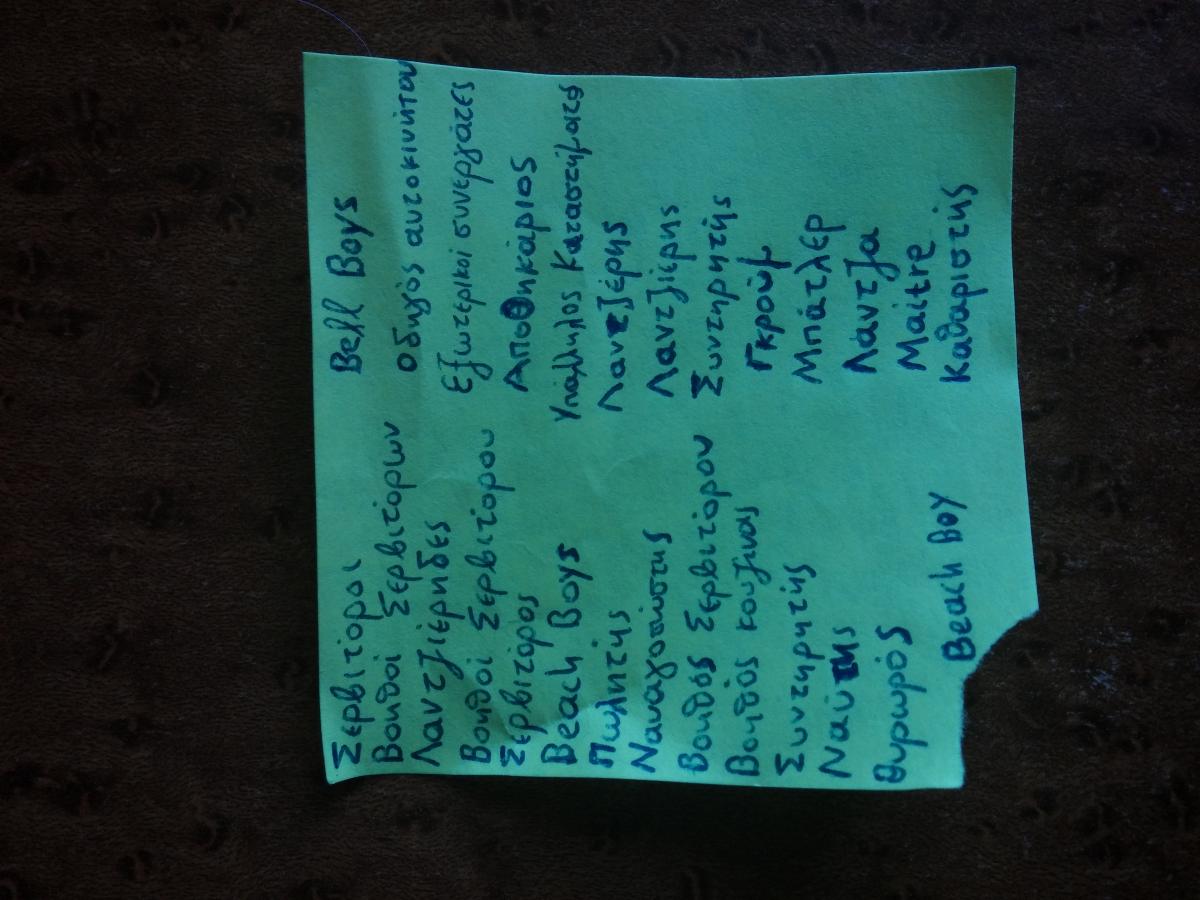 Σερβιτόροι
Βοηθοί Σερβιτόρων
Λαντζιέρηδες
Βοηθοί Σερβιτόρου
Σερβιτόρος
Beach Boys
Πωλητής
Ναυαγοσώστης
Βοηθός Σερβιτόρου
Βοηθός κουζίνας
Συντηρητής
Ναύτης
Θυρωρός
Beach Boy
Bell Boys
οδηγός αυτοκινήτου
εξωτερικοί συνεργάτες
Αποθηκάριος
Υπάλληλος Καταστήματος
Λαντζέρης
Λαντζιέρης
Συντηρητής
Γκρούμ
Μπάτλερ
Λάντζα
Maitre
Καθαριστής